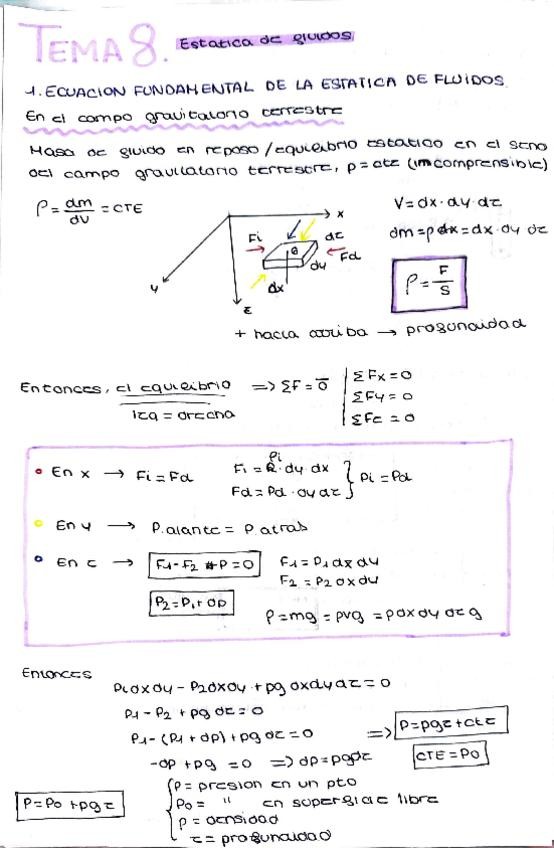 TEMA 8. Estatica de fluidos
1. ECUACION FUNDAMENTAL DE LA ESTATICA DE FLUIDOS
En el campo gravitatorio terrestre
Masa de fluido en reposo/equilibrio estatico en el seno
del campo gravitatorio terrestre, ρ=cte (imcomprensible)
ρ = dm/dV = CTE
V = dx·dy·dz
dm = ρdx = dx·dy dz
x
y
z
Fi
Fd
dz
dy
dx
P = F/S
+ hacia arriba → profundidad
Entonces, el equilibrio => ΣF = 0
izq = derecha
ΣFx = 0
ΣFy = 0
ΣFz = 0
• En x → Fi = Fd
Fi = Pi · dy dx
Fd = Pd · dy dz
Pi = Pd
• En y → P.alante = P atras
• En z → F1 - F2 + P = 0
F1 = P1 dx dy
F2 = P2 dx dy
P2 = P1 + dp
P = mg = ρvg = ρdx dy dz g
Entonces
P1dxdy - P2dxdy + ρg dxdydz = 0
P1 - P2 + ρg dz = 0
P1 - (P1 + dp) + ρg dz = 0 => P = ρgz + cte
-dp + ρg = 0 => dp = ρgdz
CTE = P0
P = P0 + ρgz
P = presion en un pto
P0 = " en superficie libre
ρ = densidad
z = profundidad